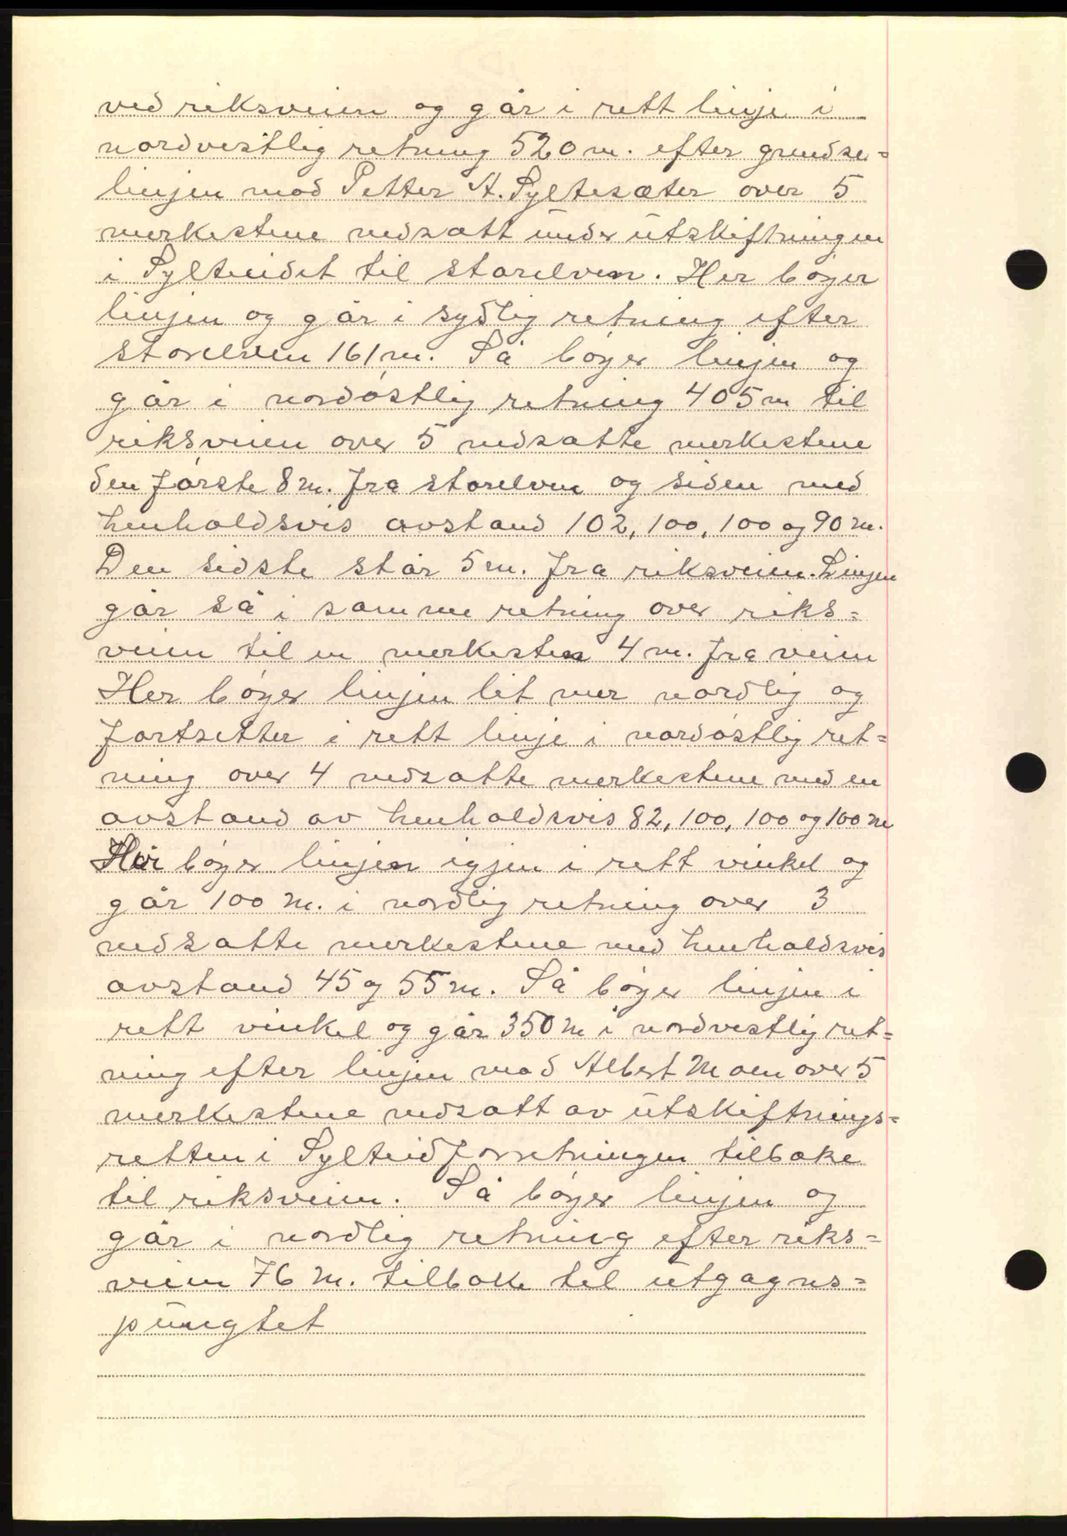 ved riksveien og går i rett linje i
nordvestlig retning 520 m. efter grundse=
linjen mod Petter A. Syltesæter over 5
merkestene nedsatt under utskiftningen
i Sylteidet til storelven. Her bøyer
linjen og går i sydlig retning efter
storelven 161 m. Så bøyer linjen og
går i nordøstlig retning 405 m til
riksveien over 5 nedsatte merkestene
den første 8 m. fra storelven og siden med
henholdsvis avstand 102, 100, 100 og 90 m.
Den sidste står 5 m. fra riksveien. Linjen
går så i samme retning over riks=
veien til en merkesten 4 m. fra veien
Her bøyer linjen lit mer nordlig og
fortsetter i rett linje i nordøstlig ret=
ning over 4 nedsatte merkestene med en
avstand av henholdsvis 82, 100, 100 og 100 m
Her bøyer linjen igjen i rett vinkel og
går 100 m. i nordlig retning over 3
nedsatte merkestene med henholdsvis
avstand 45 og 55 m. Så bøyer linjen i
rett vinkel og går 350 m i nordvestlig ret=
ning efter linjen mod Albert Moen over 5
merkestene nedsatt av utskiftnings=
retten i Sylteidforretningen tilbake
til riksveien. Så bøyer linjen og
går i nordlig retning efter riks=
veien 76 m. tilbake til utgagns=
pungtet